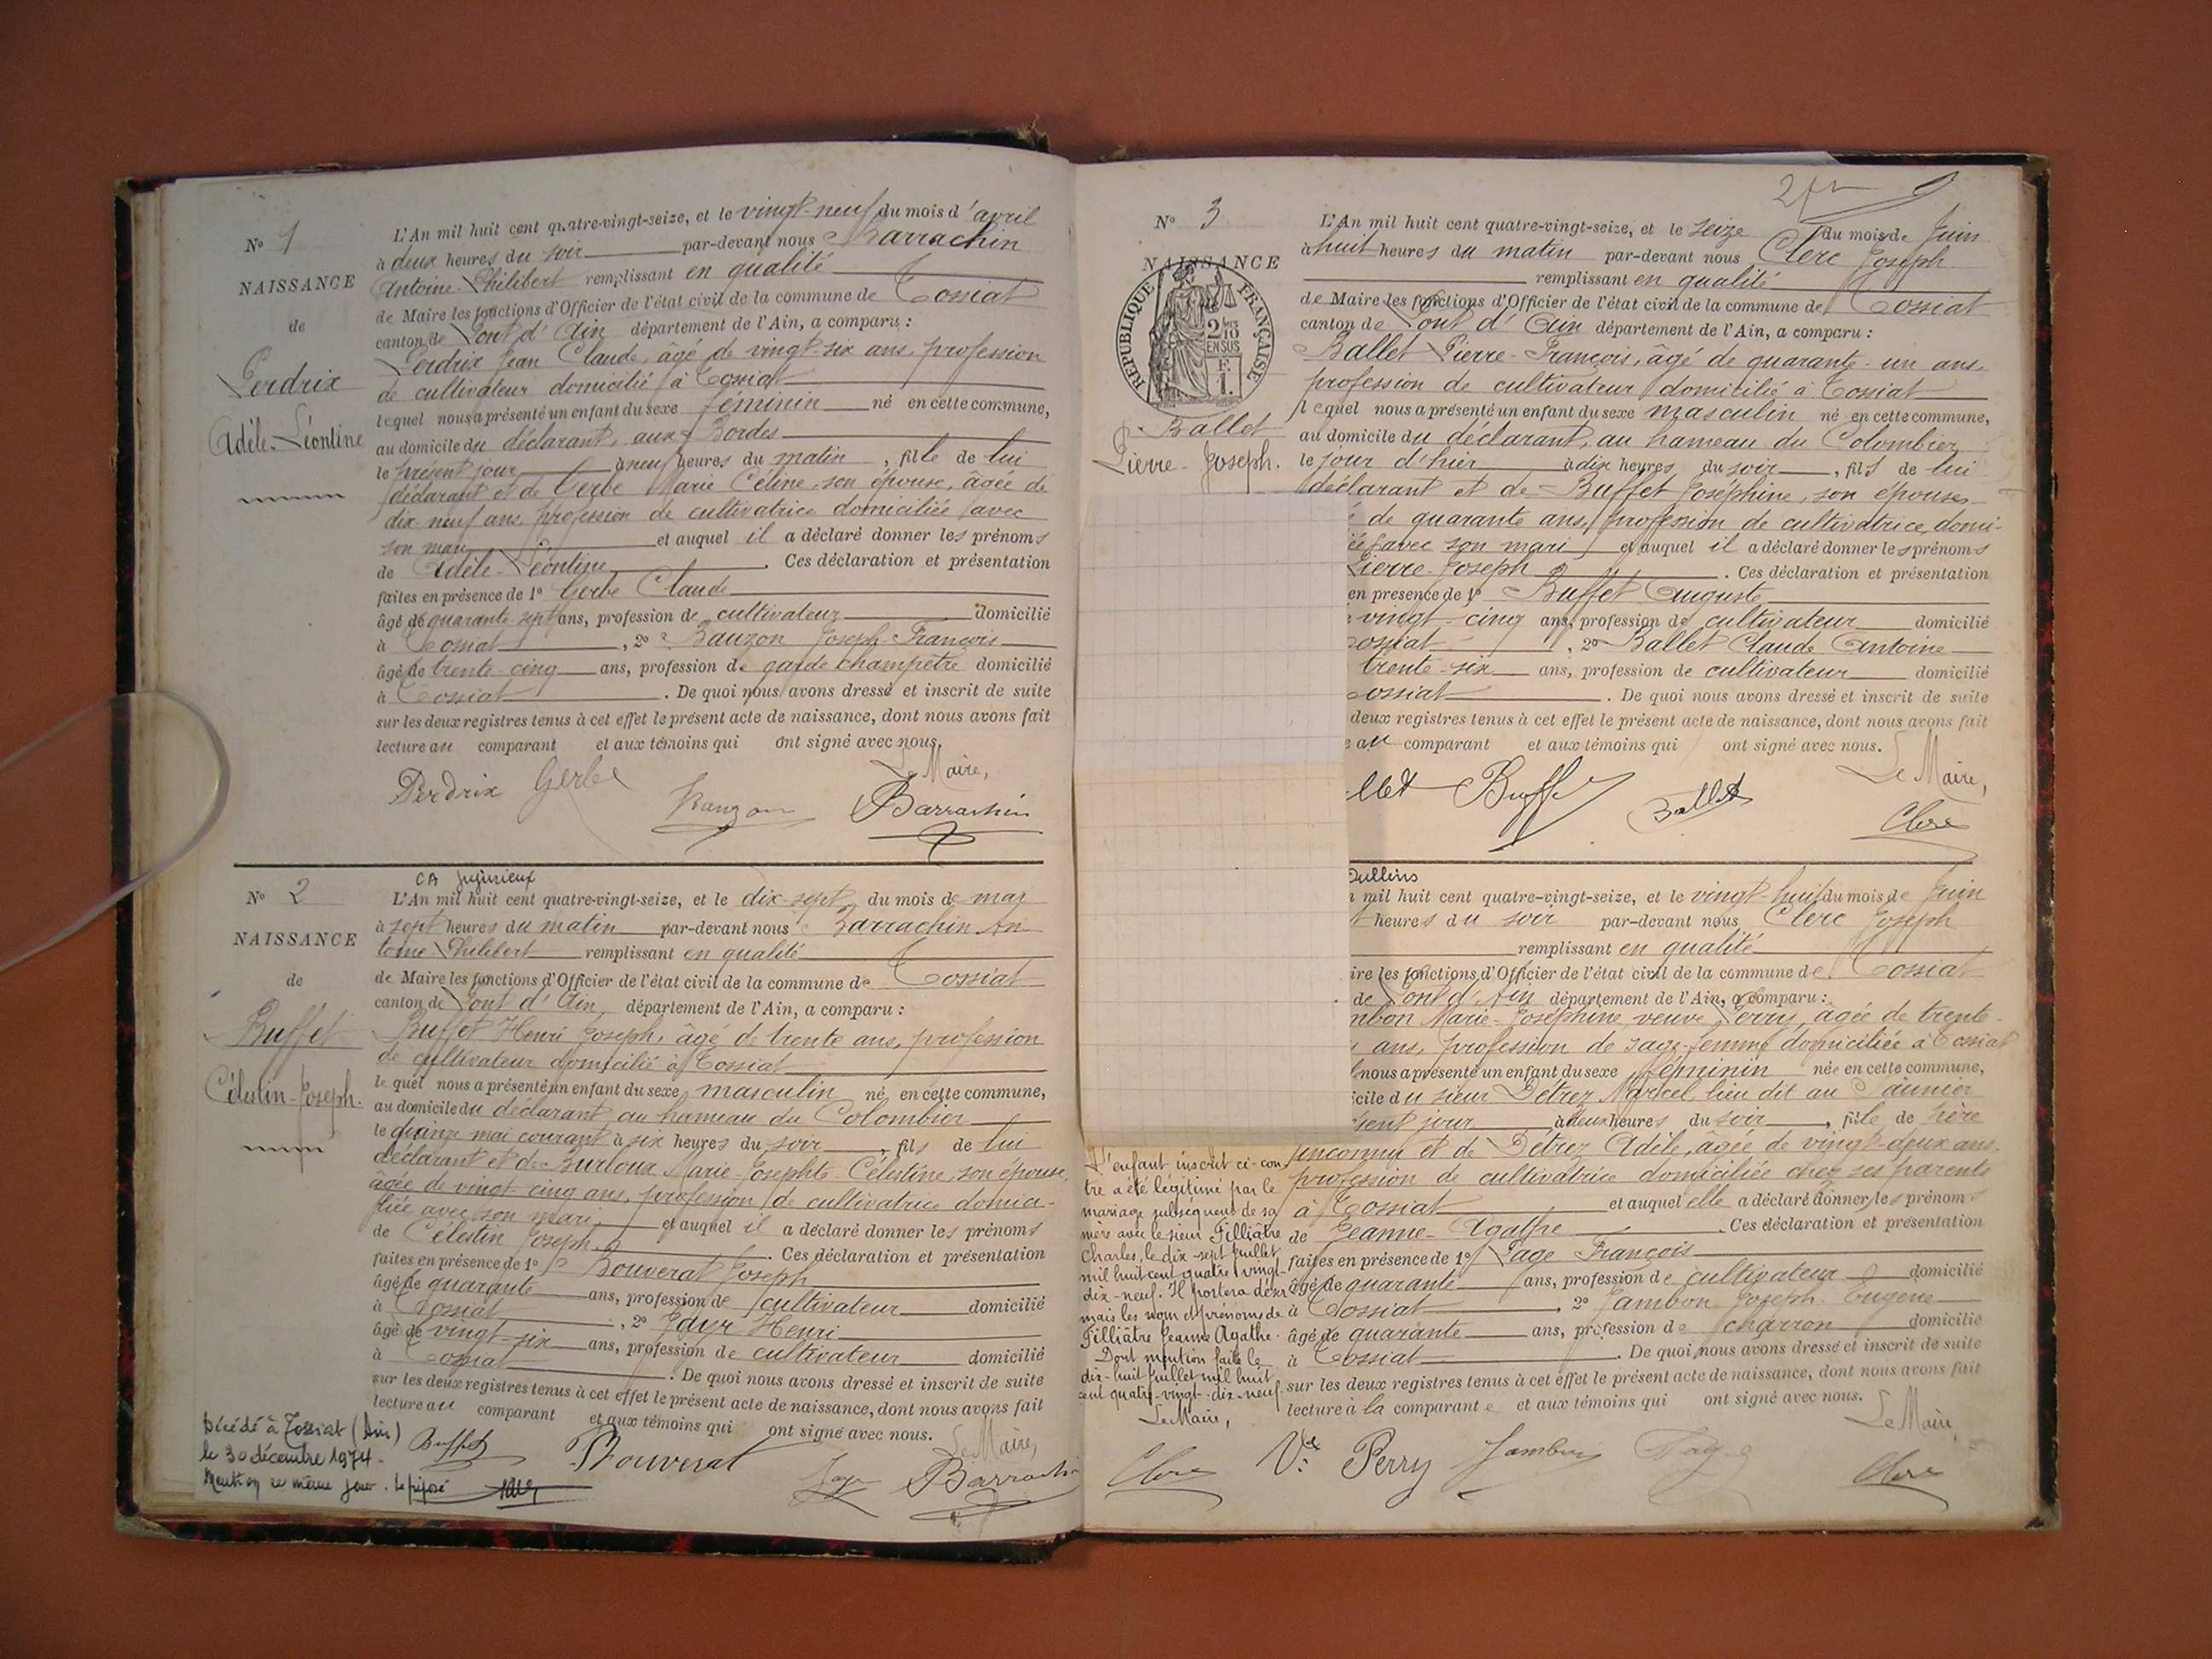 N° 1
NAISSANCE
de
Perdrix
Adèle-Léontine
L'An mil huit cent quatre-vingt-seize, et le vingt-neuf du mois d'avril
à deux heures du soir par-devant nous Barrachin
Antoine-Philibert remplissant en qualité
de Maire les fonctions d'Officier de l'état civil de la commune de Tossiat
canton de Pont d'Ain département de l'Ain, a comparu :
Perdrix Jean Claude, âgé de vingt-six ans, profession
de cultivateur domicilié à Tossiat
lequel nous a présenté un enfant du sexe féminin né en cette commune,
au domicile du déclarant, aux Bordes
le présent jour à neuf heures du matin, fille de lui
déclarant et de Gerbe Marie Céline, son épouse, âgée de
dix-neuf ans, profession de cultivatrice domiciliée avec
son mari et auquel il a déclaré donner les prénoms
de Adèle-Léontine. Ces déclaration et présentation
faites en présence de 1° Gerbe Claude
âgé de quarante-sept ans, profession de cultivateur domicilié
à Tossiat, 2° Bauzon Joseph-François
âgé de trente-cinq ans, profession de garde champêtre domicilié
à Tossiat. De quoi nous avons dressé et inscrit de suite
sur les deux registres tenus à cet effet le présent acte de naissance, dont nous avons fait
lecture au comparant et aux témoins qui ont signé avec nous.
Le Maire,
Perdrix Gerbe Bauzon Barrachin
N° 2
NAISSANCE
de
Buffet
Célestin-Joseph.
CA Jujurieux
L'An mil huit cent quatre-vingt-seize, et le dix-sept du mois de mai
à sept heures du matin par-devant nous Barrachin An
toine Philibert remplissant en qualité
de Maire les fonctions d'Officier de l'état civil de la commune de Tossiat
canton de Pont d'Ain, département de l'Ain, a comparu :
Buffet Henri Joseph, âgé de trente ans, profession
de cultivateur domicilié à Tossiat
lequel nous a présenté un enfant du sexe masculin né en cette commune,
au domicile du déclarant au hameau du Colombier
le quinze mai courant à six heures du soir, fils de lui
déclarant et de Burloux Marie-Josephte-Célestine, son épouse,
âgée de vingt-cinq ans, profession de cultivatrice domici-
liée avec son mari et auquel il a déclaré donner les prénoms
de Célestin Joseph. Ces déclaration et présentation
faites en présence de 1° Bouverat Joseph
âgé de quarante ans, profession de cultivateur domicilié
à Tossiat, 2° Jayr Henri
âgé de vingt-six ans, profession de cultivateur domicilié
à Tossiat. De quoi nous avons dressé et inscrit de suite
sur les deux registres tenus à cet effet le présent acte de naissance, dont nous avons fait
lecture au comparant et aux témoins qui ont signé avec nous.
Le Maire,
Buffet Bouverat Jayr Barrachin
Décédé à Tossiat (Ain)
le 30 décembre 1974.
Mention ce même jour. Le préposé
N° 3
NAISSANCE
RÉPUBLIQUE FRANÇAISE
2/10
EN SUS
F.
1.
Ballet
Pierre-Joseph.
L'An mil huit cent quatre-vingt-seize, et le seize du mois de Juin
à huit heures du matin par-devant nous Clerc Joseph
remplissant en qualité
de Maire les fonctions d'Officier de l'état civil de la commune de Tossiat
canton de Pont d'Ain département de l'Ain, a comparu :
Ballet Pierre-François, âgé de quarante-un ans,
profession de cultivateur domicilié à Tossiat
lequel nous a présenté un enfant du sexe masculin né en cette commune,
au domicile du déclarant, au hameau du Colombier
le jour d'hier à dix heures du soir, fils de lui
déclarant et de Buffet Joséphine, son épouse
de quarante ans, profession de cultivatrice, domi-
ée avec son mari et auquel il a déclaré donner les prénoms
Pierre-Joseph. Ces déclaration et présentation
en présence de 1° Buffet Auguste
vingt-cinq ans, profession de cultivateur domicilié
ossiat, 2° Ballet Claude Antoine
trente-six ans, profession de cultivateur domicilié
ossiat. De quoi nous avons dressé et inscrit de suite
deux registres tenus à cet effet le présent acte de naissance, dont nous avons fait
e au comparant et aux témoins qui ont signé avec nous.
Le Maire,
llet Buffet Ballet Clerc
Oullins
mil huit cent quatre-vingt-seize, et le vingt-huit du mois de Juin
heures du soir par-devant nous Clerc Joseph
remplissant en qualité
ire les fonctions d'Officier de l'état civil de la commune de Tossiat
de Pont d'Ain département de l'Ain, a comparu :
mbon Marie-Joséphine veuve Perry, âgée de trente-
ans, profession de sage-femme domiciliée à Tossiat
nous a présenté un enfant du sexe féminin née en cette commune,
icile du sieur Détrez Marcel, lieu dit au Saunier
ésent jour à deux heures du soir, fille de père
inconnu et de Détrez Adèle, âgée de vingt-deux ans,
profession de cultivatrice domiciliée chez ses parents
à Tossiat et auquel elle a déclaré donner les prénoms
de Jeanne-Agathe. Ces déclaration et présentation
faites en présence de 1° Page François
âgé de quarante ans, profession de cultivateur domicilié
à Tossiat, 2° Jambon Joseph-Eugène
âgé de quarante ans, profession de charron domicilié
à Tossiat. De quoi nous avons dressé et inscrit de suite
sur les deux registres tenus à cet effet le présent acte de naissance, dont nous avons fait
lecture à la comparante et aux témoins qui ont signé avec nous.
Le Maire,
Vve Perry Jambon Page Clerc
L'enfant inscrit ci-con
tre a été légitimé par le
mariage subséquent de sa
mère avec le sieur Filliâtre
Charles, le dix-sept Juillet
mil huit cent quatre vingt-
dix-neuf. Il portera désor
mais les nom et prénoms de
Filliâtre Jeanne Agathe.
Dont mention faite le
dix-huit Juillet mil huit
cent quatre-vingt-dix-neuf.
Le Maire,
Clerc